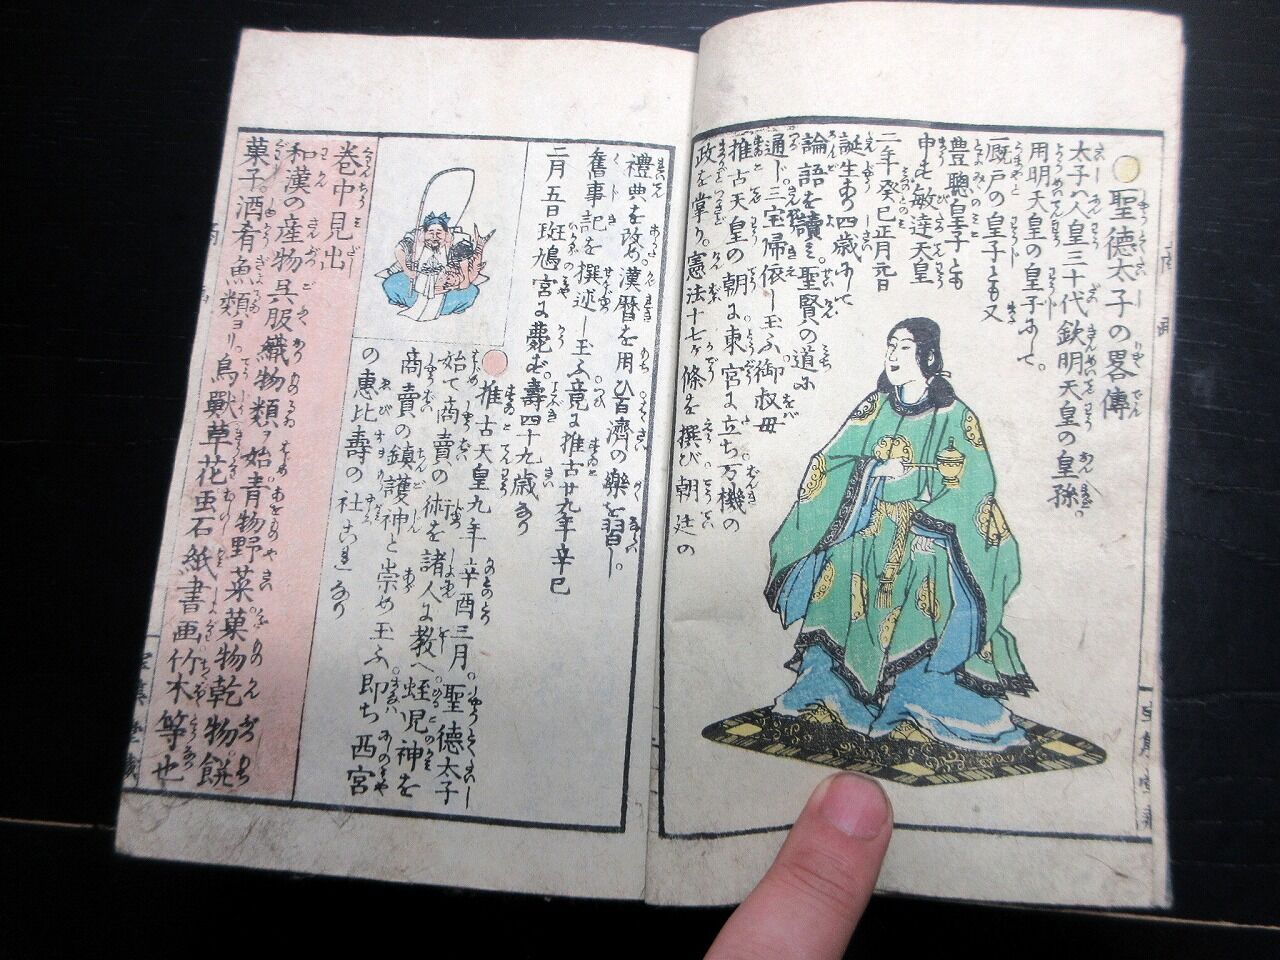 聖徳太子の畧傳
太子ハ人皇三十代欽明天皇の皇孫
用明天皇の皇子にして。
厩戸の皇子とも又
豊聰皇子とも
申も敏達天皇
二年癸巳正月元日
誕生あり四歳にして
論語を讀ミ。聖賢の道に
通じ三宝帰依し玉ふ御叔母
推古天皇の朝に東宮に立ち万機の
政を掌り。憲法十七ケ條を撰び朝廷の
禮典を改め漢暦を用ひ百濟の樂を習し。
舊事記を撰述し玉ふ竟に推古廿九年辛巳
二月五日斑鳩宮に薨ず。壽四十九歳なり
推古天皇九年辛酉三月。聖徳太子
始て商賣の術を諸人に教へ蛭児神を
商賣の鎮護神と崇め玉ふ即ち西宮
の恵比壽の社これなり
巻中見出
和漢の産物呉服織物類ヲ始青物野菜菓物乾物餅
菓子。酒肴魚類ヨリ。鳥獸草花虫石紙書画竹木等也